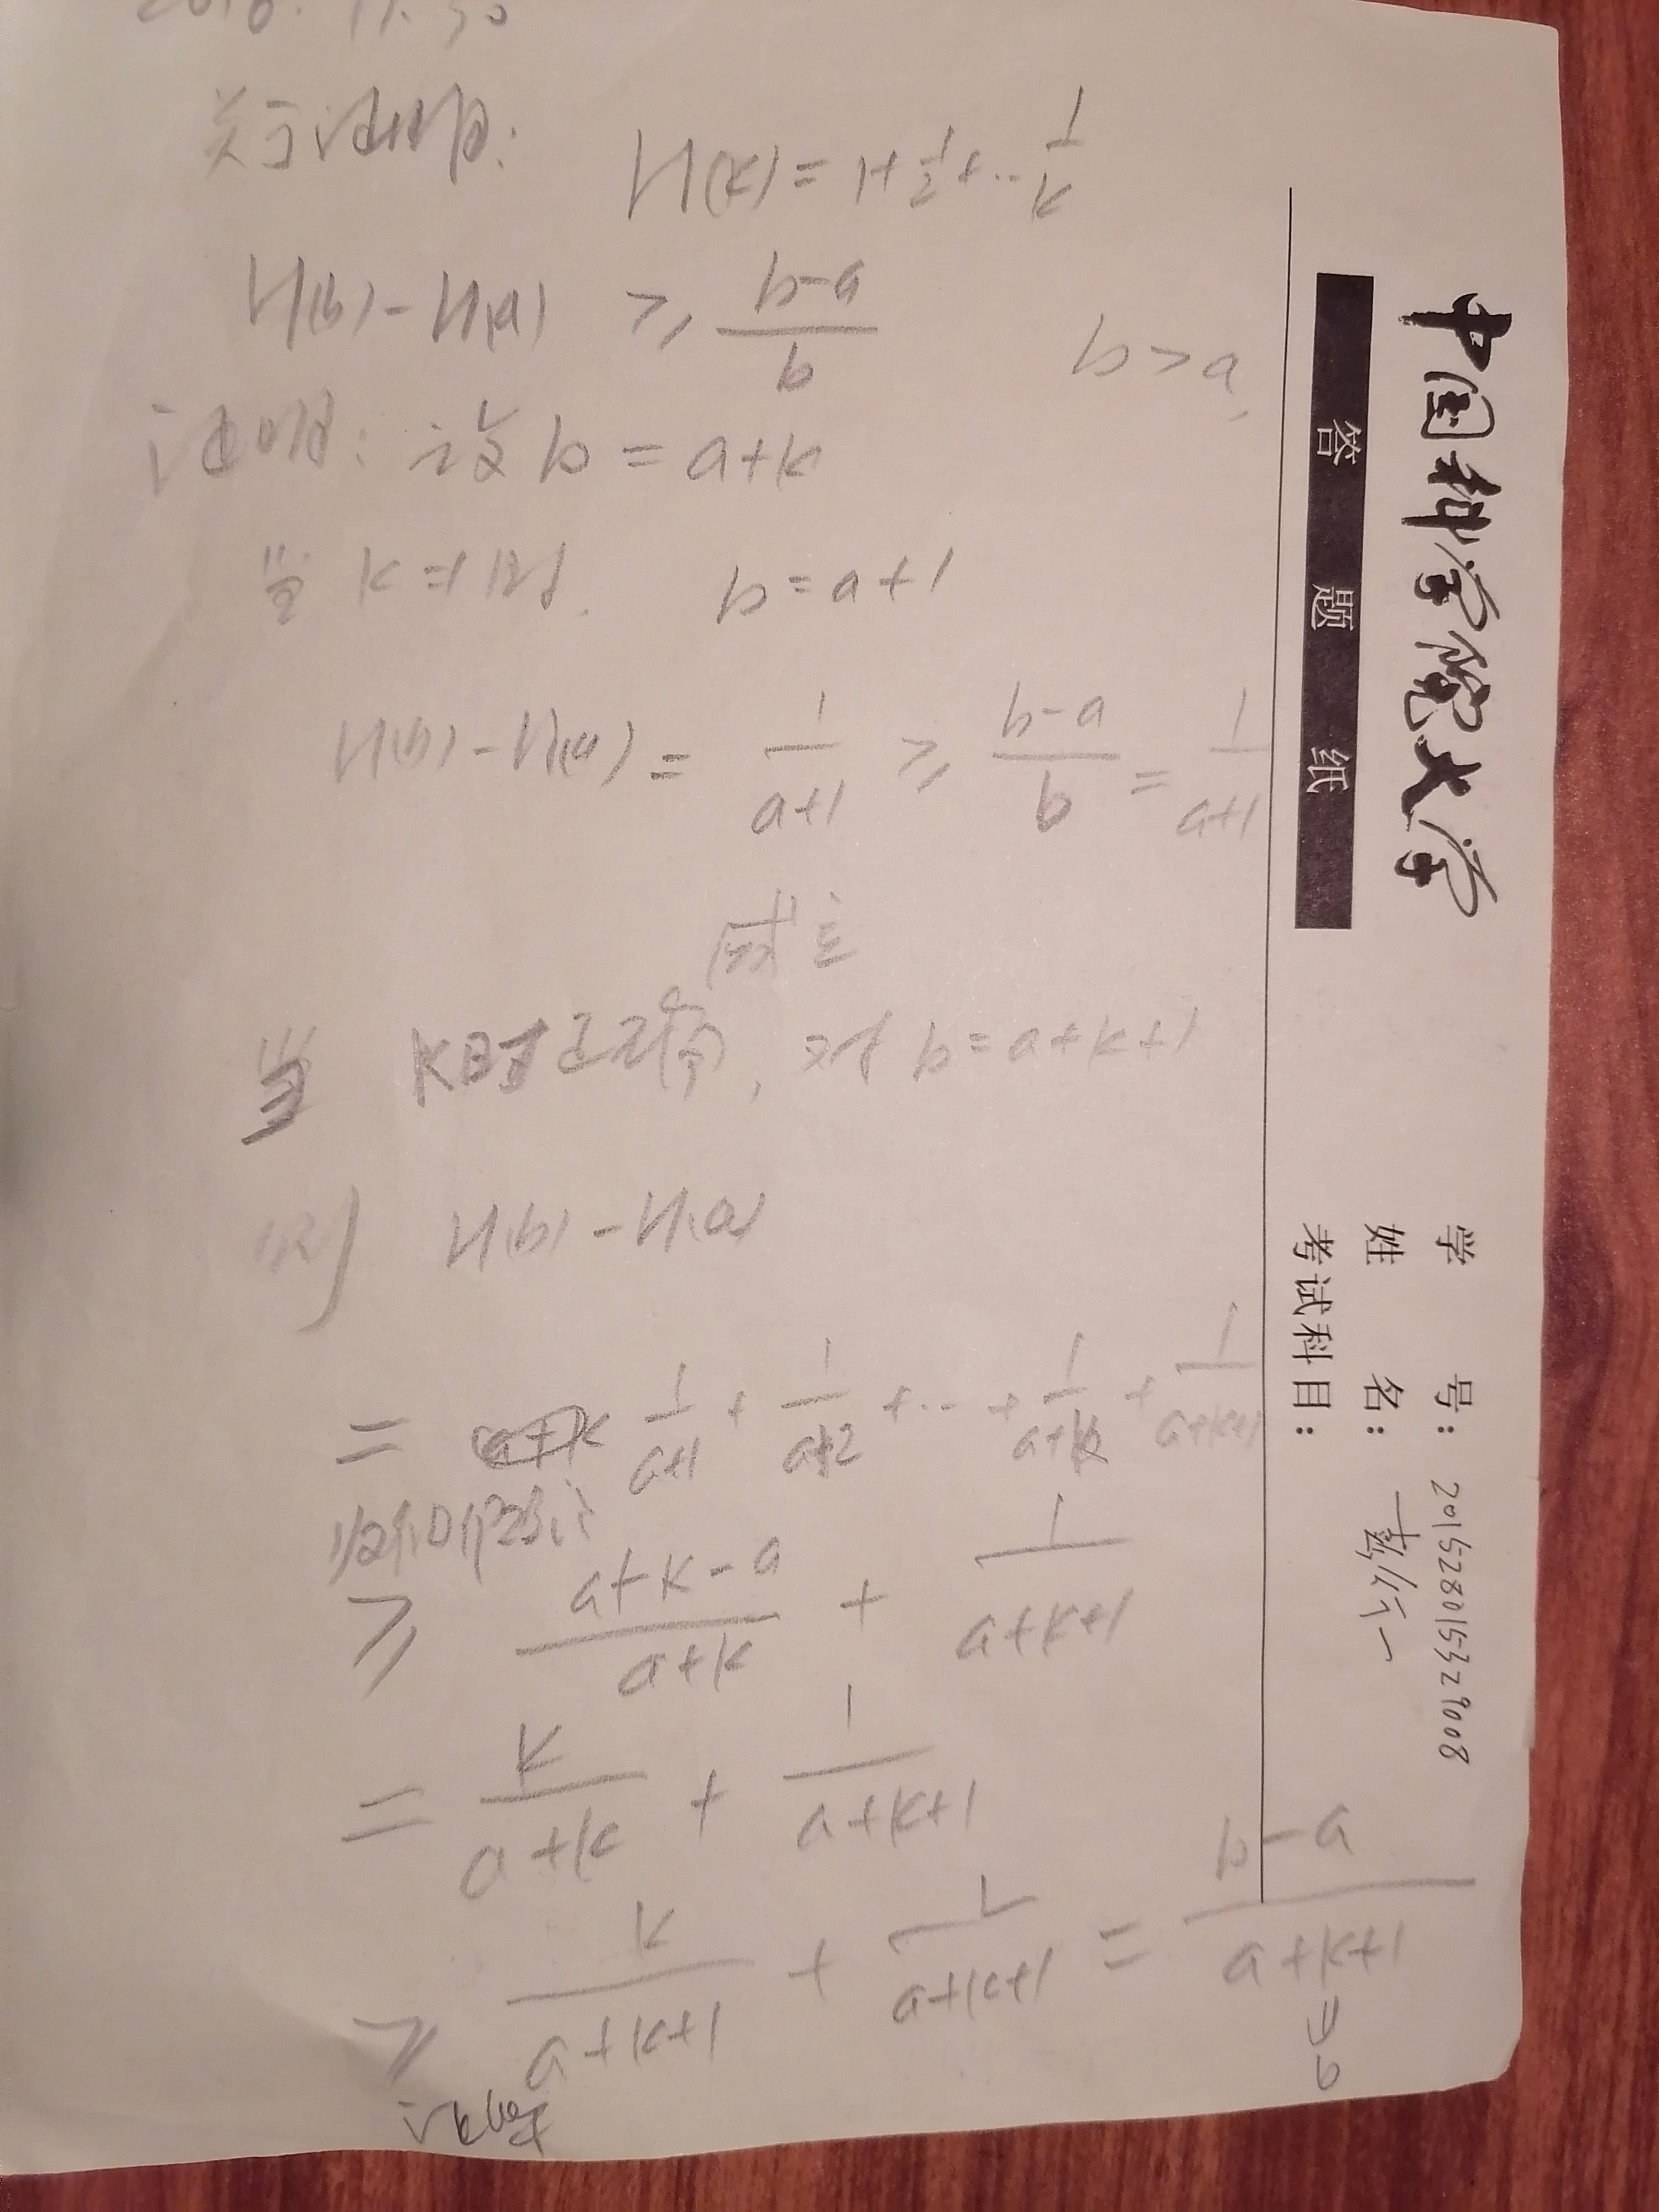 关于证明: H(k) = 1+1/2+...1/k
H(b) - H(a) ≥ (b-a)/b b > a
证明: 设 b = a+k
当 k=1时. b=a+1
H(b) - H(a) = 1/(a+1) ≥ (b-a)/b = 1/(a+1)
成立
当 k时正确, 对 b=a+k+1
则 H(b) - H(a)
= 1/(a+1) + 1/(a+2) + ... + 1/(a+k) + 1/(a+k+1)
归纳假设
≥ (a+k-a)/(a+k) + 1/(a+k+1)
= k/(a+k) + 1/(a+k+1)
≥ k/(a+k+1) + 1/(a+k+1) = (b-a)/(a+k+1)
证明
中国科学院大学
答题纸
学号: 201528015329008
姓名:
考试科目: